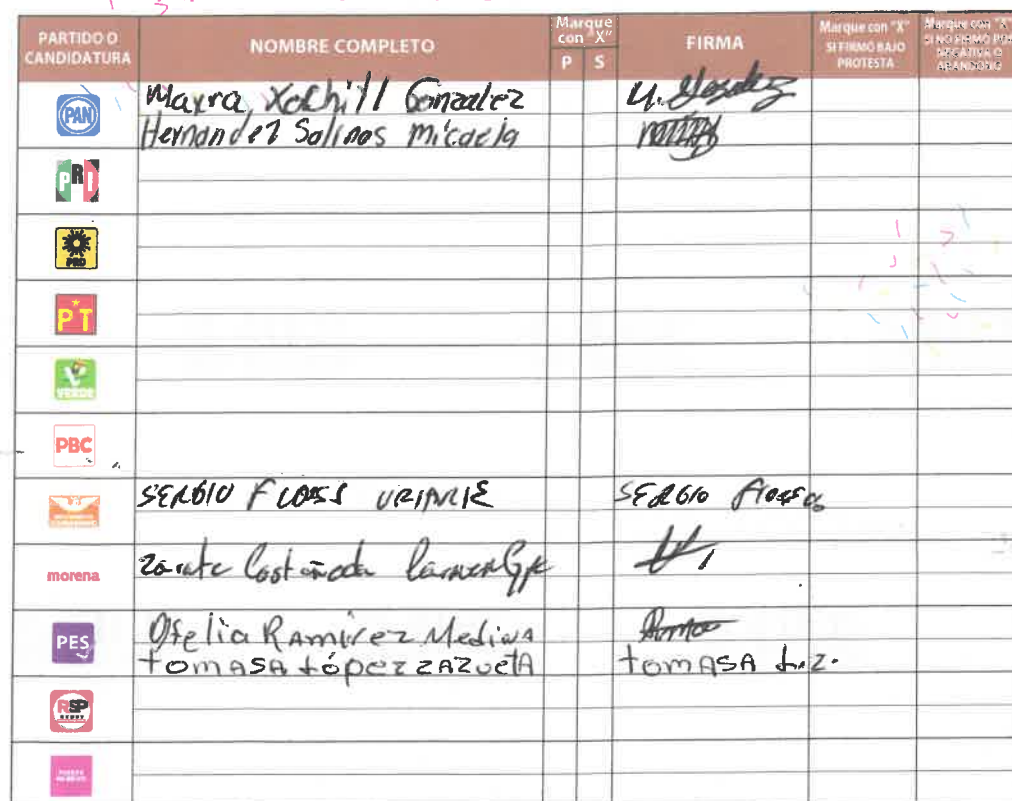 PARTIDO O CANDIDATURA
NOMBRE COMPLETO
Marque con "X"
P S
FIRMA
Marque con "X" SI FIRMÓ BAJO PROTESTA
Marque con "X" SI NO FIRMÓ POR NEGATIVA O ABANDONO
PAN
Mayra Xochitl Gonzalez
Hernandez Salinas Micaela
PRI
PRD
PT
VERDE
PBC
SERGIO FLORES URIARTE SERGIO Flores
morena
Zarate Castañeda Carmen Gpe
PES
Ofelia Ramirez Medina
tomASA López zAzuetA tomASA L.z.
RSP